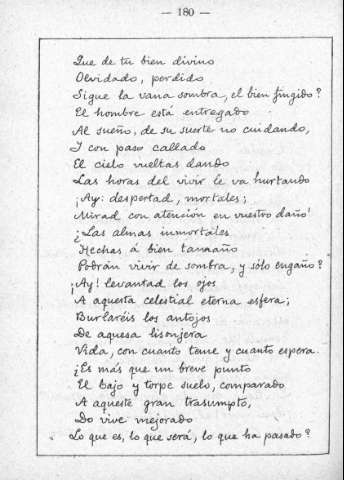 — 180 —
Que de tu bien divino
Olvidado, perdido
Sigue la vana sombra, el bien fingido?
El hombre está entregado
Al sueño, de su suerte no cuidando,
Y con paso callado
El cielo vueltas dando
Las horas del vivir le va hurtando
¡Ay: despertad, mortales;
Mirad con atención en vuestro daño!
¿Las almas inmortales
Hechas á bien tamaño
Podrán vivir de sombra, y sólo engaño?
¡Ay! levantad los ojos
A aquesta celestial eterna esfera;
Burlaréis los antojos
De aquesa lisonjera
Vida, con cuanto teme y cuanto espera.
¿Es más que un breve punto
El bajo y torpe suelo, comparado
A aqueste gran trasumpto,
Do vive mejorado
Lo que es, lo que será, lo que ha pasado?